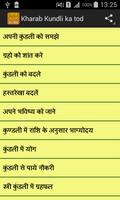 13:25
Kharab Kundli ka tod
अपनी कुंडली को समझे
ग्रहो को शांत करे
कुंडली को बदलें
हस्तरेखा बदलें
अपने भविष्य को जाने
कुण्डली में राशि के अनुसार भाग्योदय
कुंडली से पाये नौकरी
स्त्री कुंडली में ग्रहफल